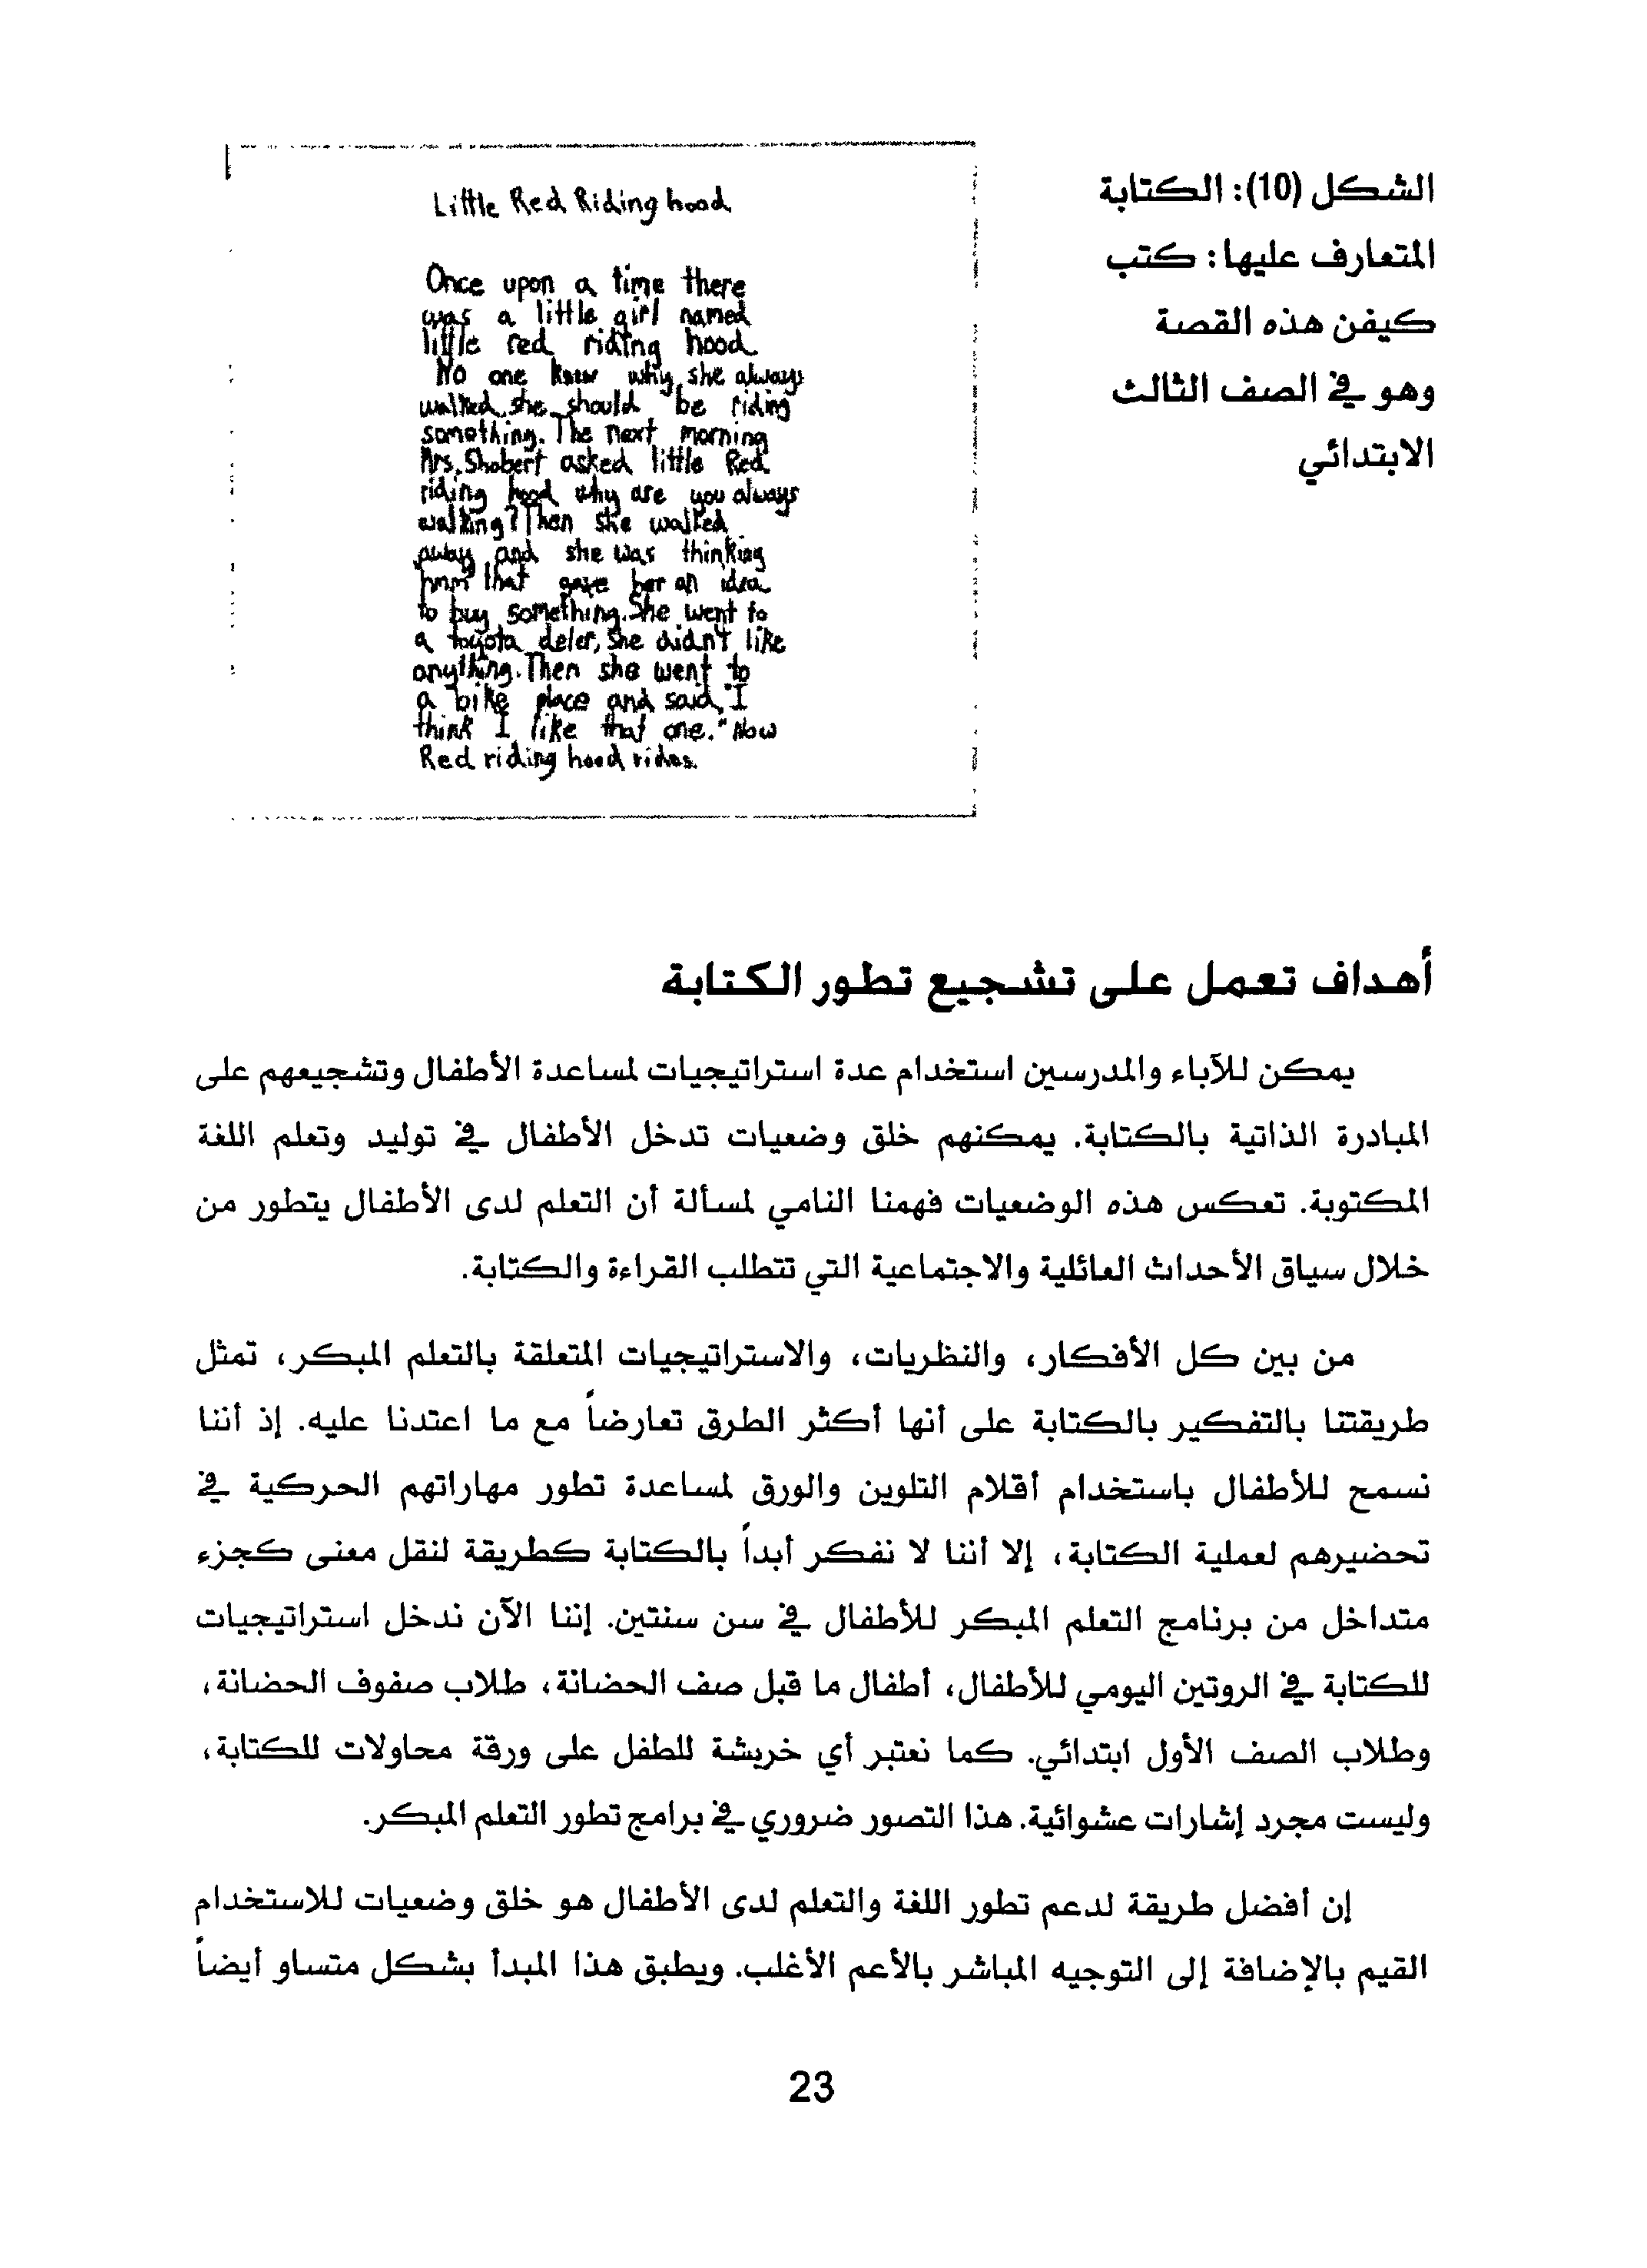 الشكل (10): الكتابة
المتعارف عليها: كتب
كيفن هذه القصة
وهو في الصف الثالث
الابتدائي
Little Red Riding hood
Once upon a time there
was a little girl named
little red riding hood
No one knew why she always
walked. she should be riding
something. The next morning
Mrs. Shobert asked little Red
riding hood why are you always
walking? Then she walked
away and she was thinking
hmm that gave her an idea
to buy something. She went to
a toyota deler, She didn't like
anything. Then she went to
a bike place and said, "I
think I like that one." Now
Red riding hood rides.
أهداف تعمل على تشجيع تطور الكتابة
يمكن للآباء والمدرسين استخدام عدة استراتيجيات لمساعدة الأطفال وتشجيعهم على
المبادرة الذاتية بالكتابة. يمكنهم خلق وضعيات تدخل الأطفال في توليد وتعلم اللغة
المكتوبة. تعكس هذه الوضعيات فهمنا النامي لمسألة أن التعلم لدى الأطفال يتطور من
خلال سياق الأحداث العائلية والاجتماعية التي تتطلب القراءة والكتابة.
من بين كل الأفكار، والنظريات، والاستراتيجيات المتعلقة بالتعلم المبكر، تمثل
طريقتنا بالتفكير بالكتابة على أنها أكثر الطرق تعارضاً مع ما اعتدنا عليه. إذ أننا
نسمح للأطفال باستخدام أقلام التلوين والورق لمساعدة تطور مهاراتهم الحركية في
تحضيرهم لعملية الكتابة، إلا أننا لا نفكر أبداً بالكتابة كطريقة لنقل معنى كجزء
متداخل من برنامج التعلم المبكر للأطفال في سن سنتين. إننا الآن ندخل استراتيجيات
للكتابة في الروتين اليومي للأطفال، أطفال ما قبل صف الحضانة، طلاب صفوف الحضانة،
وطلاب الصف الأول ابتدائي. كما نعتبر أي خربشة للطفل على ورقة محاولات للكتابة،
وليست مجرد إشارات عشوائية. هذا التصور ضروري في برامج تطور التعلم المبكر.
إن أفضل طريقة لدعم تطور اللغة والتعلم لدى الأطفال هو خلق وضعيات للاستخدام
القيم بالإضافة إلى التوجيه المباشر بالأعم الأغلب. ويطبق هذا المبدأ بشكل متساو أيضاً
23